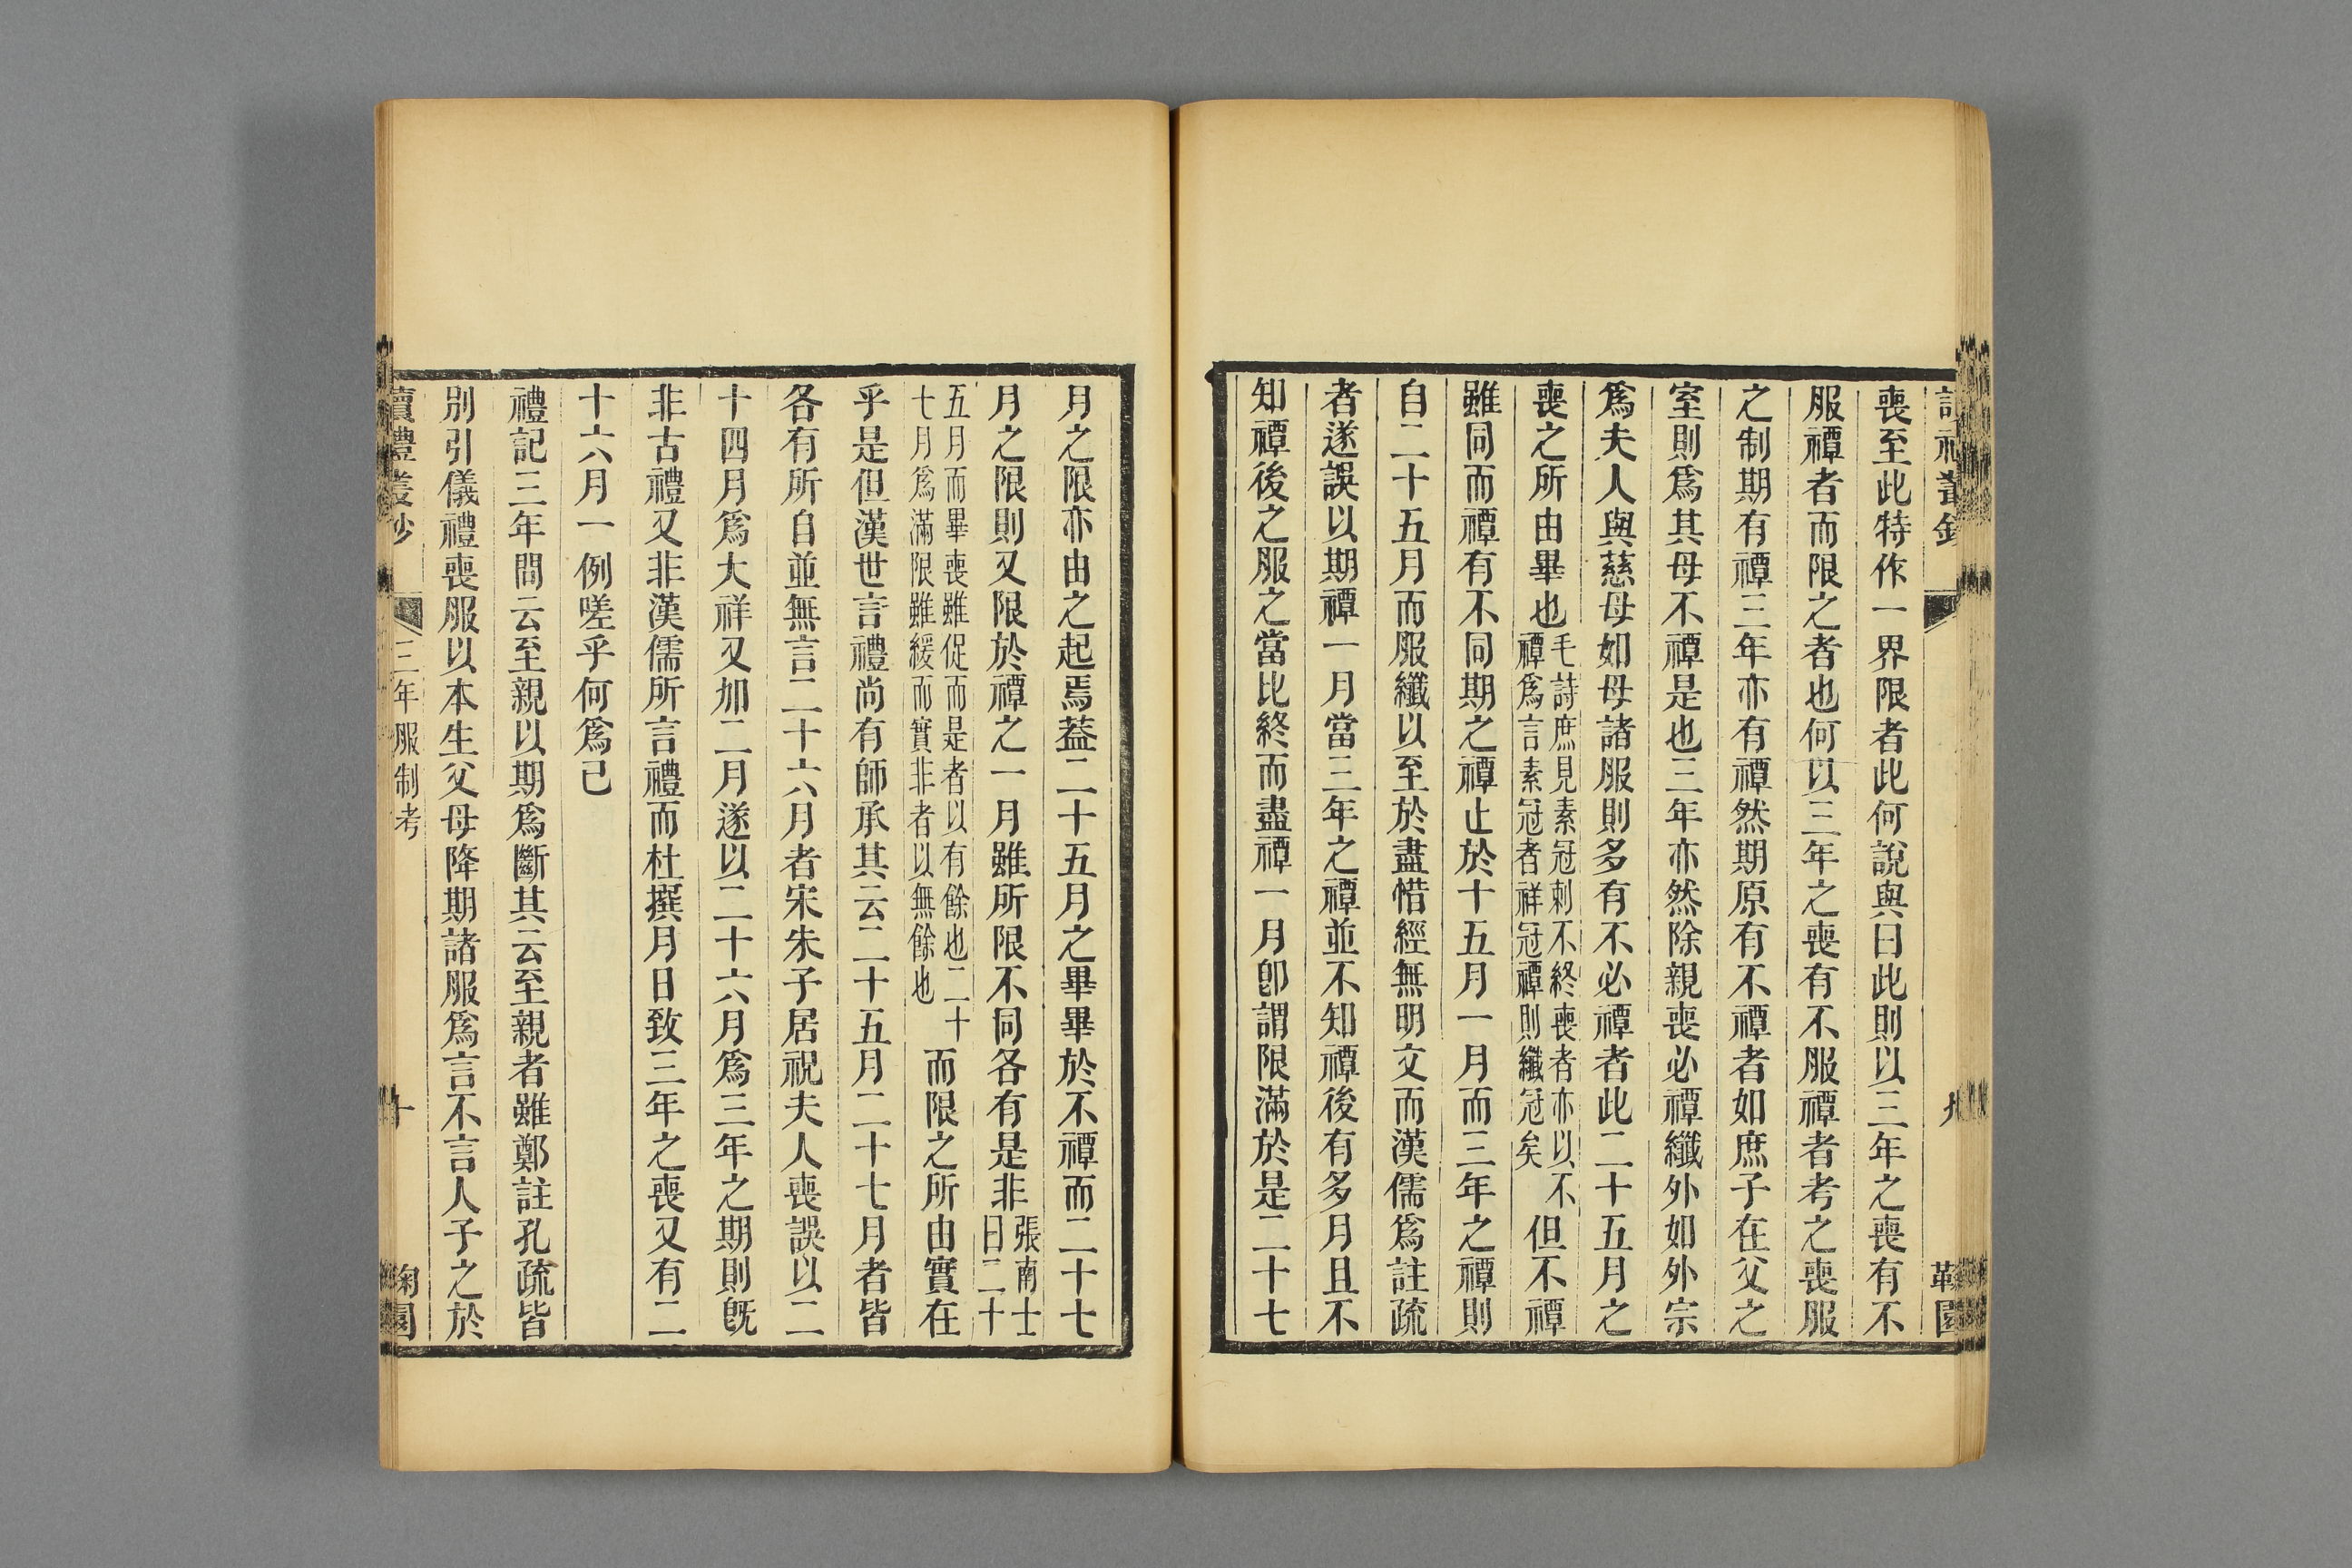 喪至此特作一界限者此何說與曰此則以三年之喪有不
服禫者而限之者也何以三年之喪有不服禫者考之喪服
之制期有禫三年亦有禫然期原有不禫者如庶子在父之
室則爲其母不禫是也三年亦然除親喪必禫纖外如外宗
爲夫人與慈母如母諸服則多有不必禫者此二十五月之
喪之所由畢也毛詩庶見素冠刺不終喪者亦以不禫爲言素冠者祥冠禫則纖冠矣但不禫
雖同而禫有不同期之禫止於十五月一月而三年之禫則
自二十五月而服纖以至於盡惜經無明文而漢儒爲註疏
者遂誤以期禫一月當三年之禫並不知禫後有多月且不
知禫後之服之當比終而盡禫一月卽謂限滿於是二十七
月之限亦由之起焉葢二十五月之畢畢於不禫而二十七
月之限則又限於禫之一月雖所限不同各有是非張南士曰二十
五月而畢喪雖促而是者以有餘也二十七月爲滿限雖緩而實非者以無餘也而限之所由實在
乎是但漢世言禮尚有師承其云二十五月二十七月者皆
各有所自並無言二十六月者宋朱子居祝夫人喪誤以二
十四月爲大祥又加二月遂以二十六月爲三年之期則旣
非古禮又非漢儒所言禮而杜撰月日致三年之喪又有二
十六月一例嗟乎何爲已
禮記三年問云至親以期爲斷其云至親者雖鄭註孔疏皆
別引儀禮喪服以本生父母降期諸服爲言不言人子之於
三年服制考
十